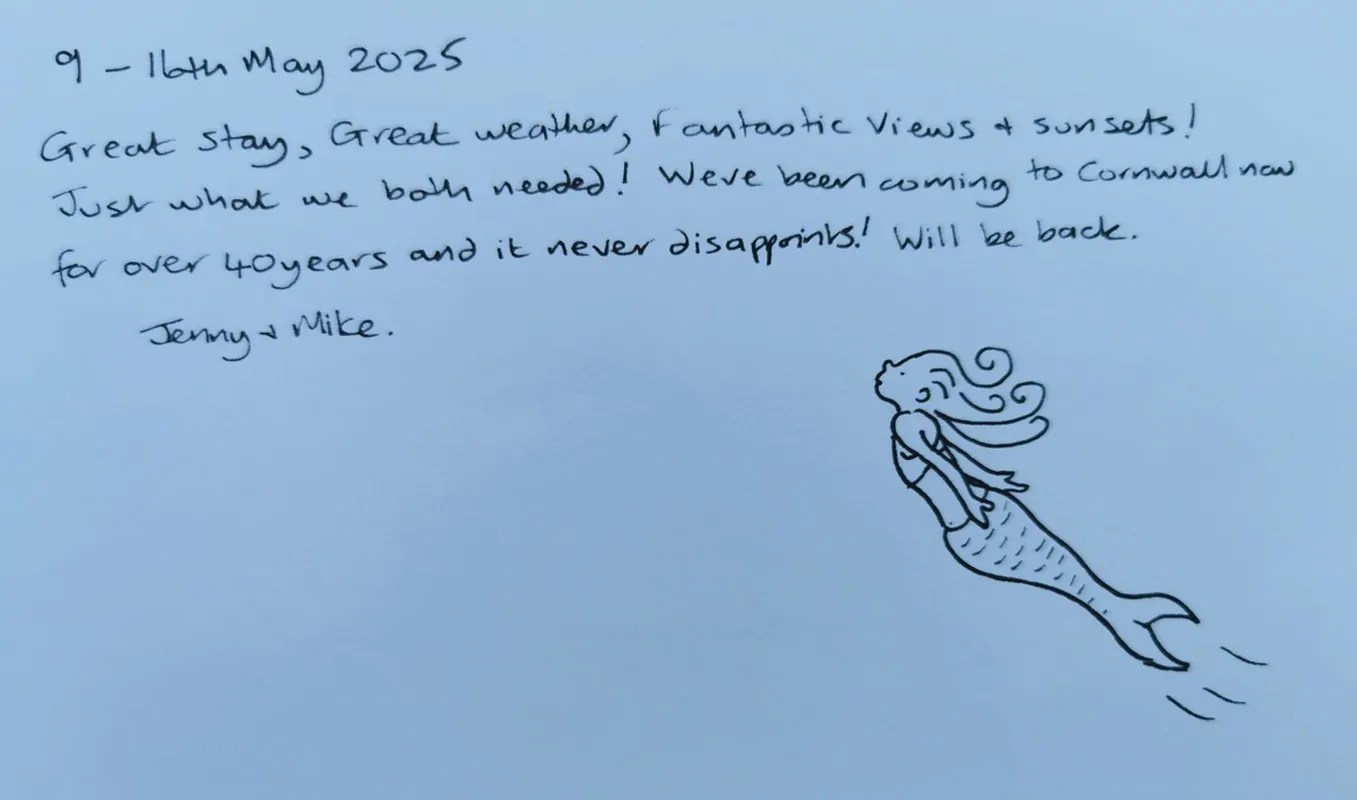 9 - 16th May 2025
Great stay, Great weather, Fantastic Views + sunsets!
Just what we both needed! Weve been coming to Cornwall now
for over 40 years and it never disappoints! Will be back.
Jenny + Mike.